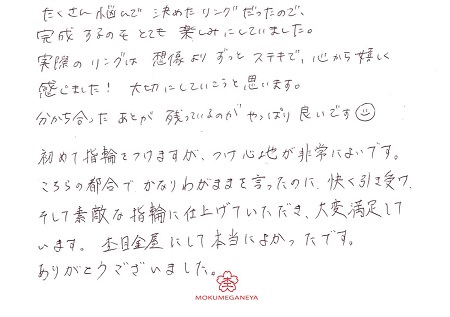 たくさん悩んで決めたリングだったので、
完成するのをとても楽しみにしていました。
実際のリングは想像よりずっとステキで、心から嬉しく
感じました！大切にしていこうと思います。
分かち合ったあとが残っているのがやっぱり良いです☺
初めて指輪をつけますが、つけ心地が非常によいです。
こちらの都合でかなりわがままを言ったのに、快く引き受け、
そして素敵な指輪に仕上げていただき、大変満足して
います。杢目金屋にして本当によかったです。
ありがとうございました。
MOKUMEGANEYA